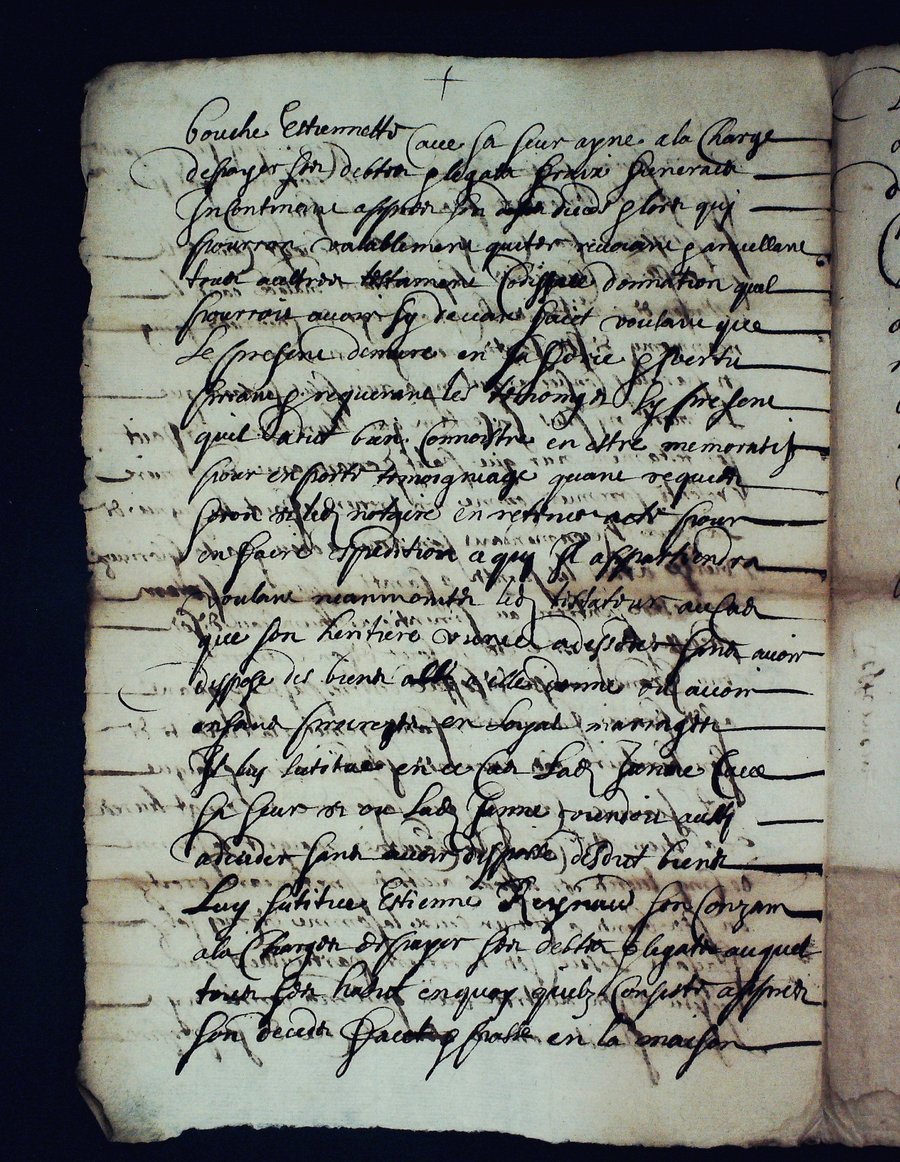 bouche Estiennette Cave sa seur ayne a la Charge
de payer ses debtes & legats fraix funerailes
Incontinent appres son deces & lors qui
pourron valablement quiter revocant & anullant
tous aultres testament Codiscille donnation quel
pourroit avoir sy devant faict voulant que
Le present demeure en sa force & vertu
priant & requerant les temoings sy present
quel dict bien Connoistre en estre memoratif
pour en porter temoigniage quant requis
seron & led notaire en retenir acte pour
en faire expedition a quy Il appartiendra
voulant neanmointz led testateur au Cas
que son heritiere vienne a desseder sans avoir
dispose des biens a elle donne ou avoir
enfans procrees en loyal mariage
Il luy substitue en ce cas Lad Janne Cave
sa seur & ou Lad Janne viendroit aussy
a deceder sans avoir dispose desdict biens
Luy substitue Estienne Reynaud son Couzain
a la Charge de payer ses debtes & legats auquel
tous ses biens en quoy quilz Consiste appres
son deces faict & passe en la maison